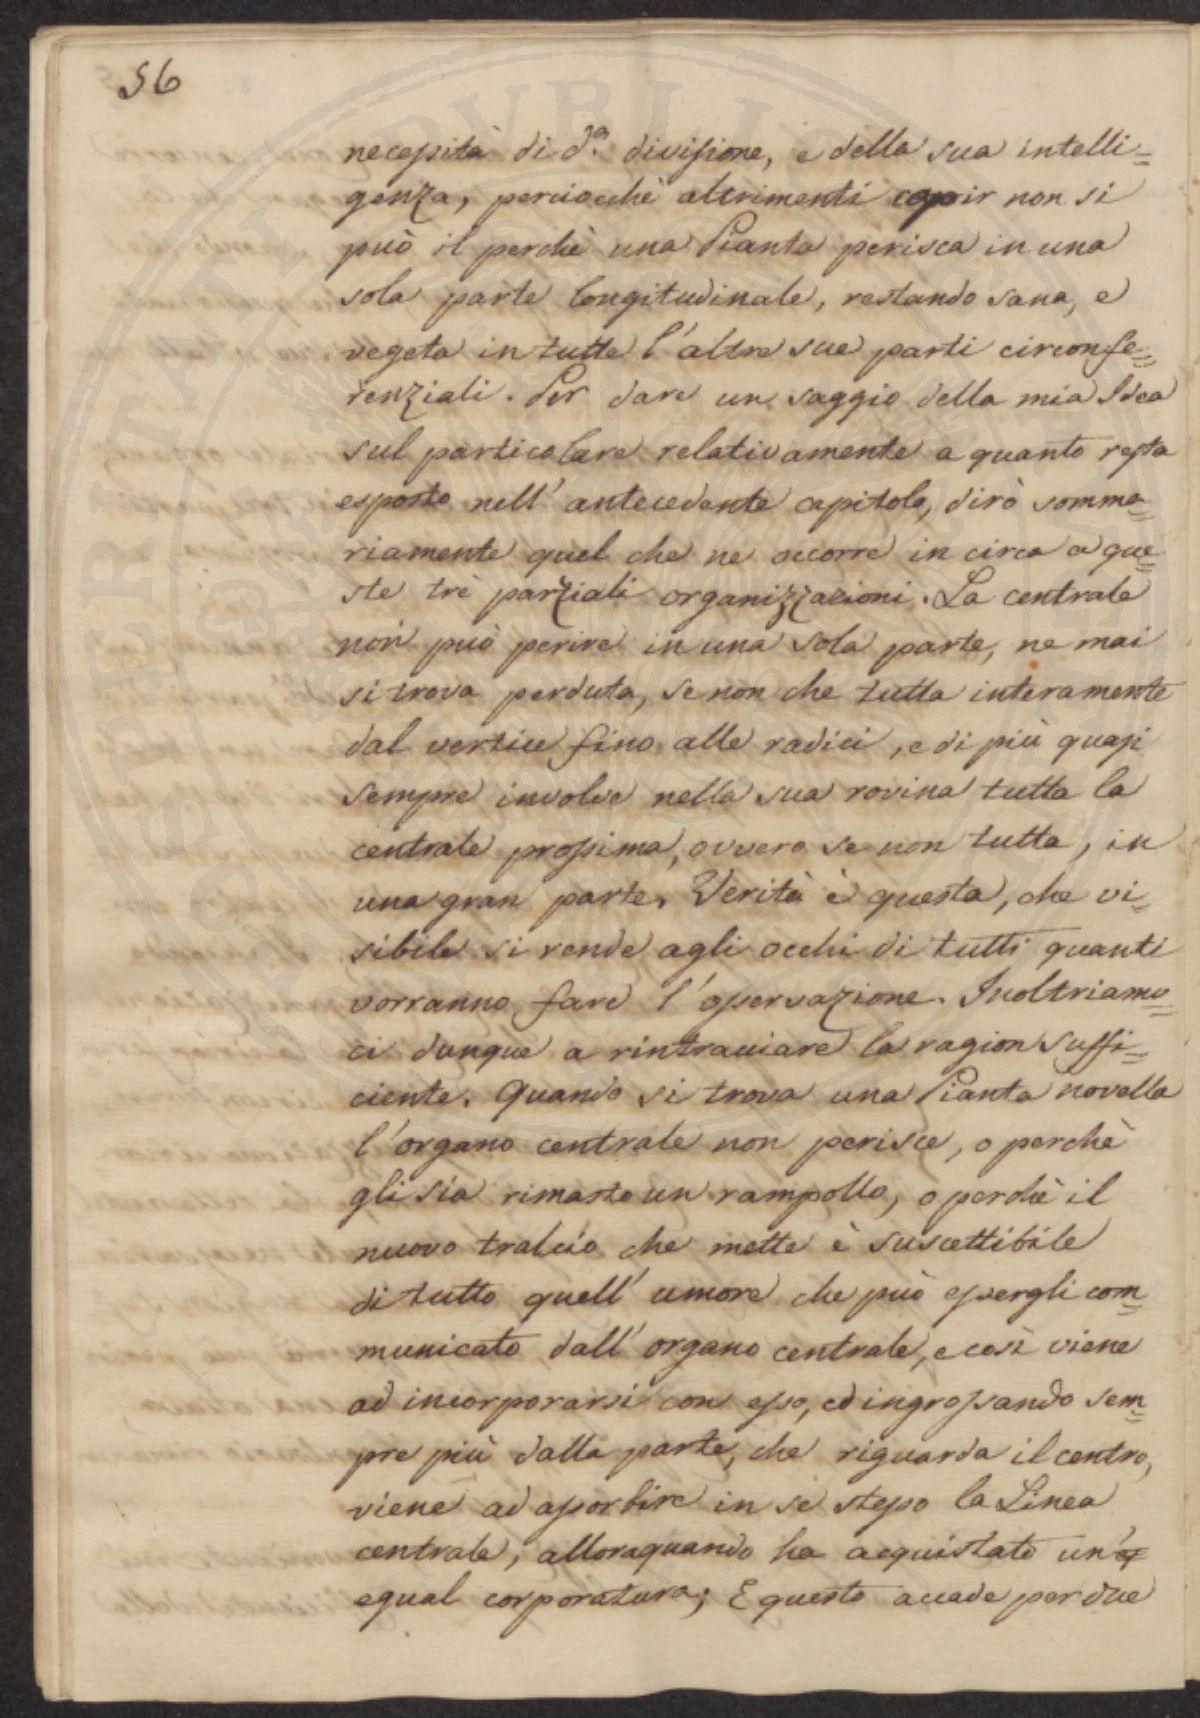 56
necessità di d.ª divisione, e della sua intelli=
genza, perciocchè altrimenti capir non si
può il perchè una Pianta perisca in una
sola parte longitudinale, restando sana, e
vegeta in tutte l'altre sue parti circonfe=
renziali. Per dare un saggio della mia Idea
sul particolare relativamente a quanto resta
esposto nell'antecedente capitolo, dirò somma=
riamente quel che ne occorre in circa a que=
ste trè parziali organizzazioni. La centrale
non può perire in una sola parte, ne mai
si trova perduta, se non che tutta interamente
dal vertice fino alle radici, e di più quasi
sempre involve nella sua rovina tutta la
centrale prossima, ovvero se non tutta, in
una gran parte. Verità è questa, che vi=
sibile si rende agli occhi di tutti quanti
vorranno fare l'osservazione. Inoltriamo=
ci dunque a rintracciare la ragion suffi=
ciente. Quando si trova una Pianta novella
l'organo centrale non perisce, o perchè
gli sia rimasto un rampollo, o perchè il
nuovo tralcio che mette è suscettibile
di tutto quell'umore che può essergli com=
municato dall'organo centrale, e così viene
ad incorporarsi con esso, ed ingrossando sem=
pre più dalla parte, che riguarda il centro,
viene ad assorbire in sè stesso la Linea
centrale, alloraquando ha acquistato un'
egual corporatura; E questo accade per due
SPERITATI PVBLI